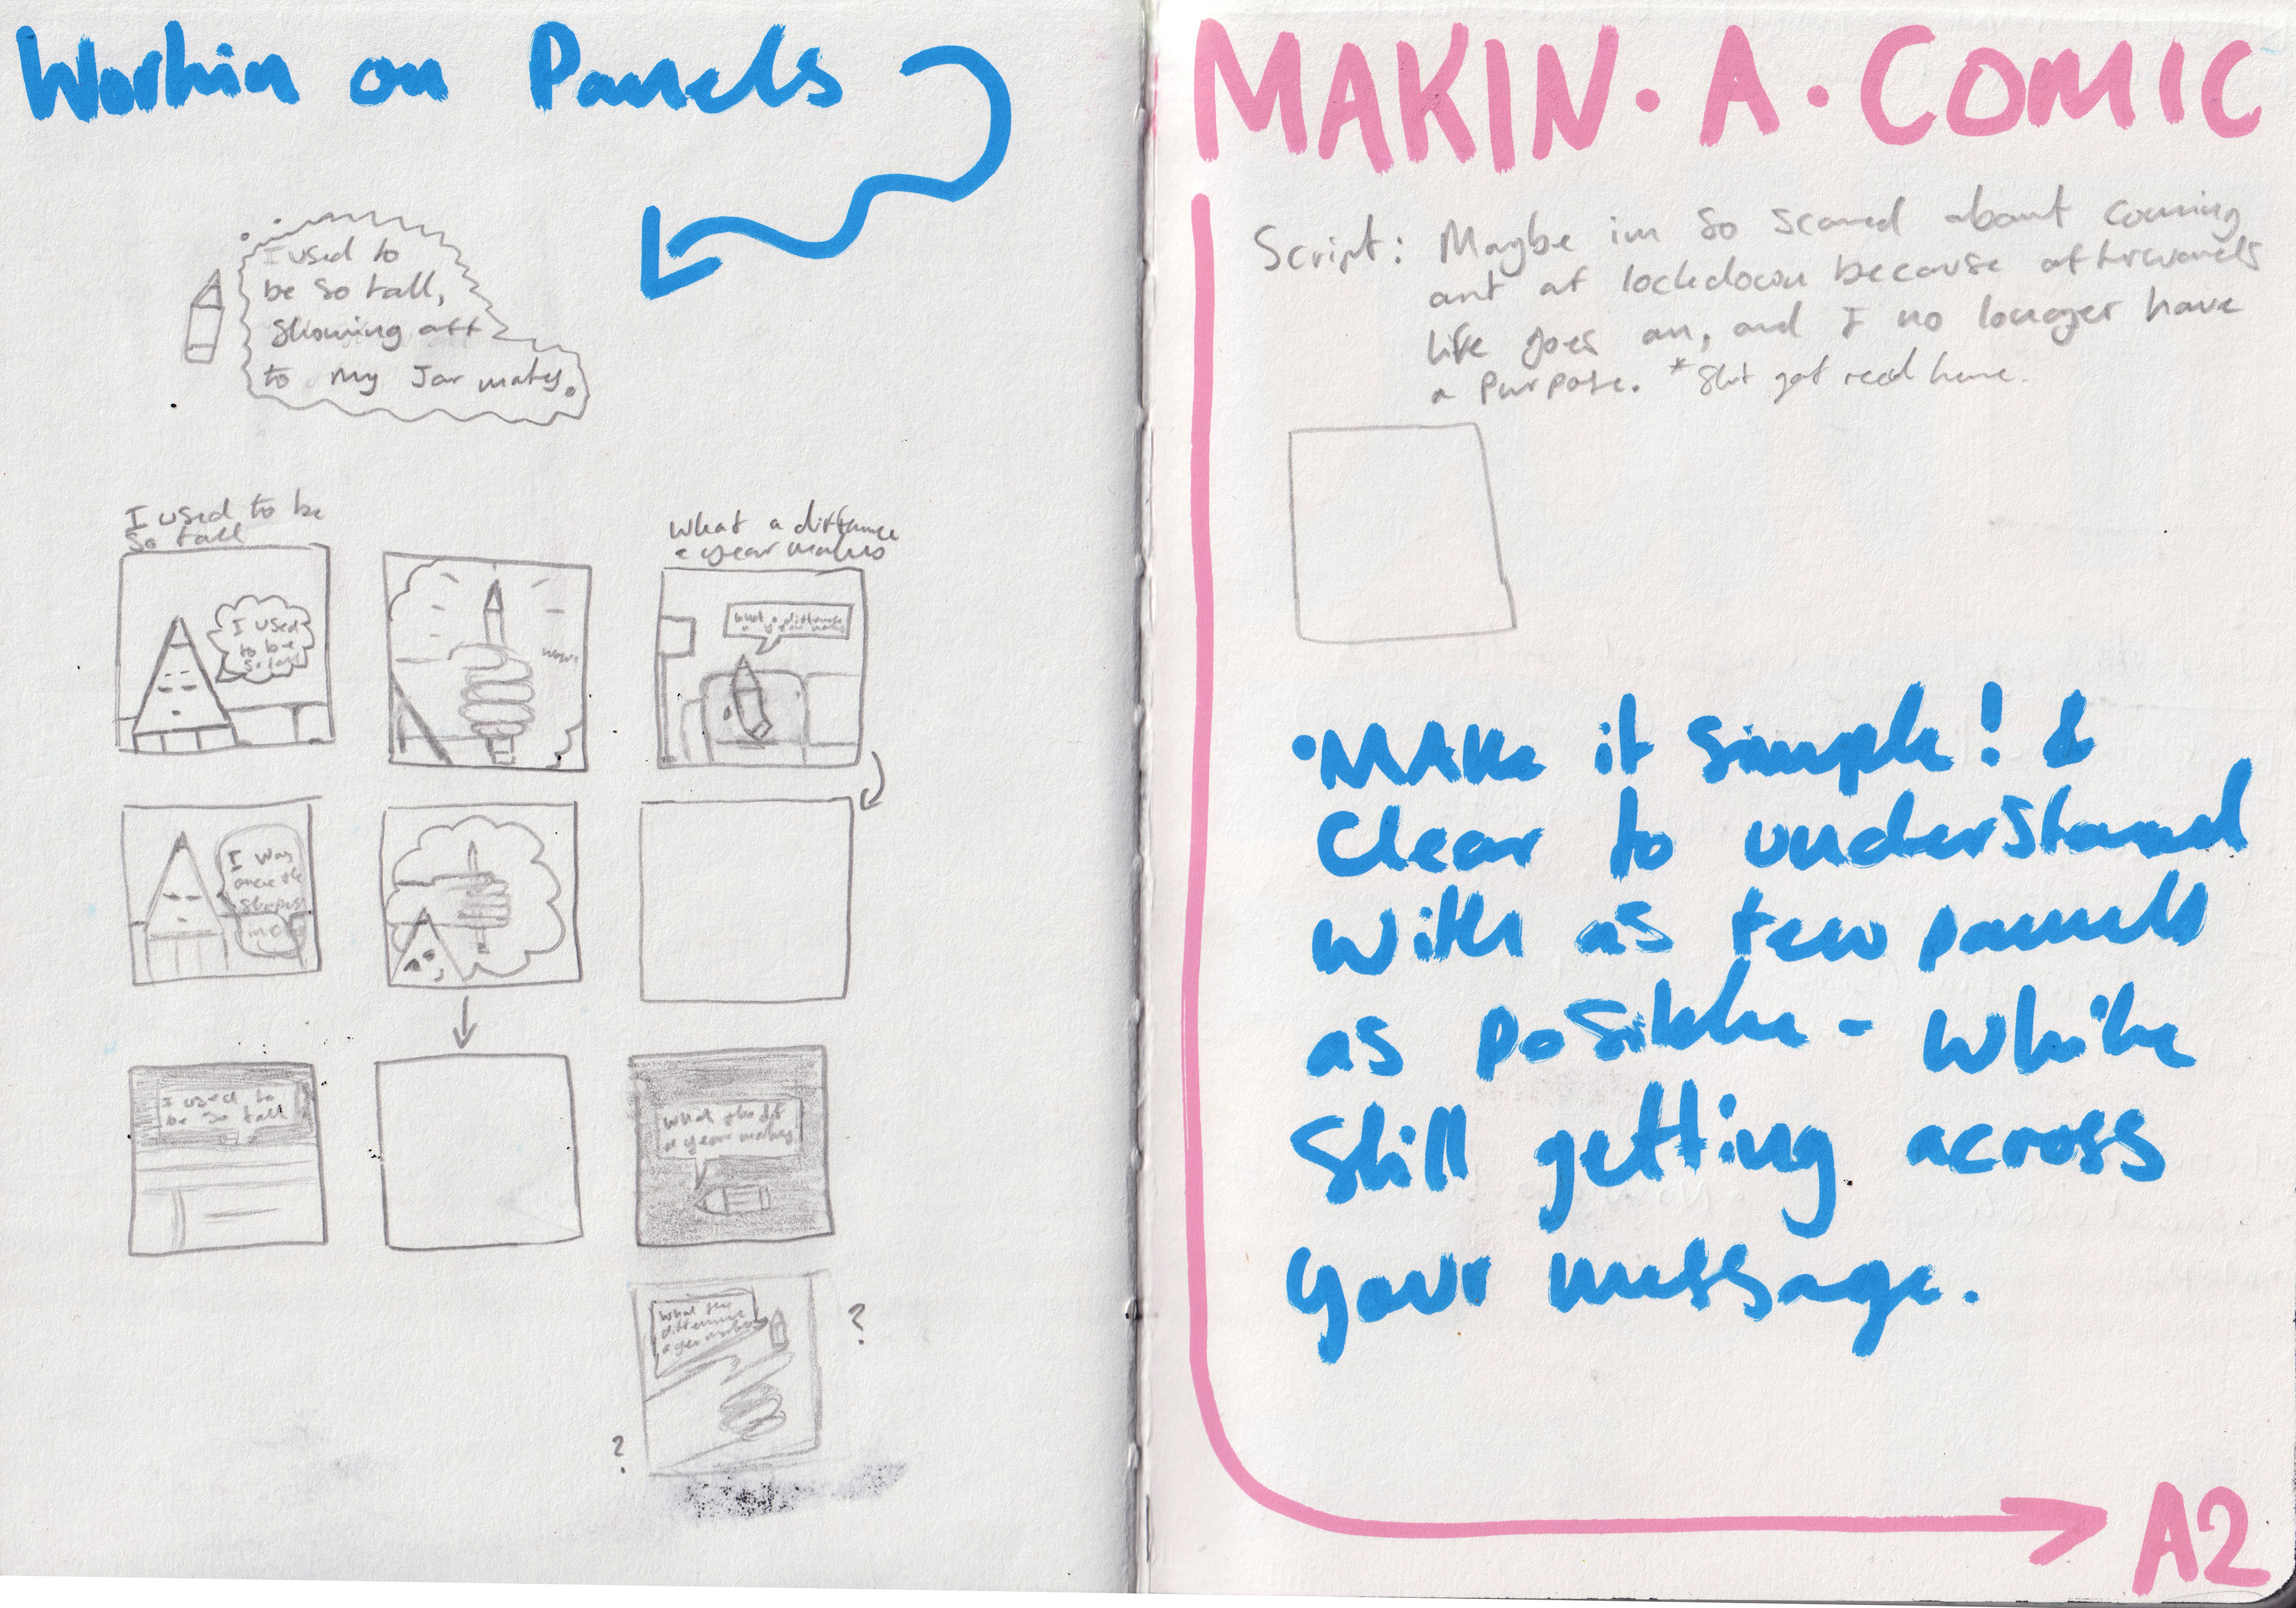 Workin on Panels
I used to
be so tall,
showing off
to my Jar mates.
I used to be
so tall
What a difference
a year makes
I used
to be
so tall
wow!
What a difference
a year makes
I was
once the
sharpest
in class
I used to
be so tall
What the dif
a year makes
What the
difference
a year makes
?
?
MAKIN · A · COMIC
Script: Maybe im so scared about coming
out of lockdown because afterwards
life goes on, and I no longer have
a purpose. * Shit got real here.
• MAKe it simple! &
Clear to understand
with as few panels
as posible - while
still getting across
your message.
A2